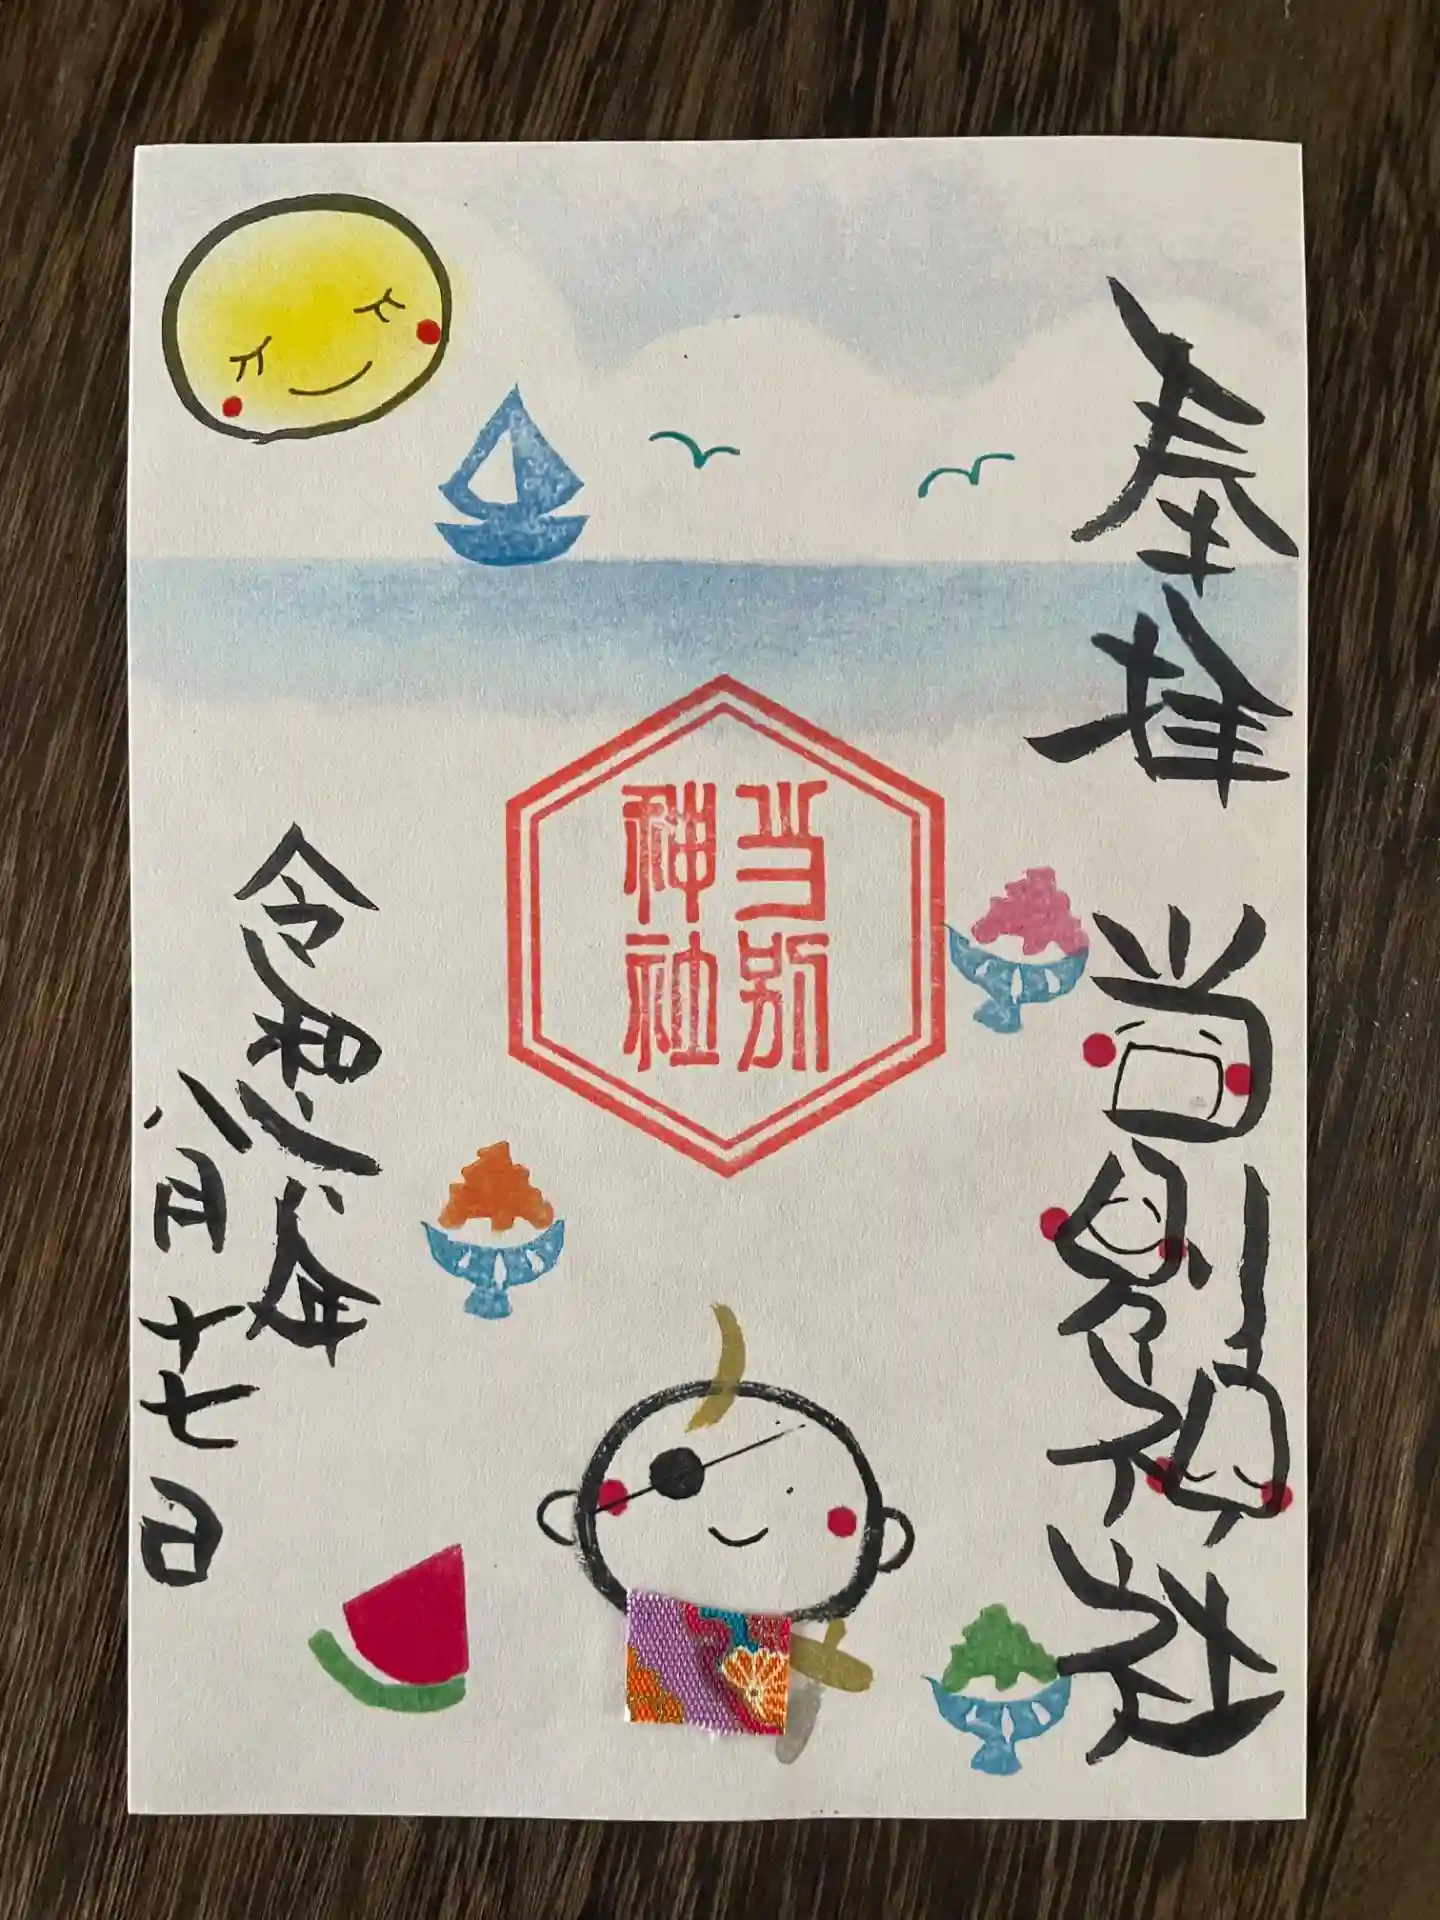 奉拝
當別神社
当別
神社
令和六年
八月十七日